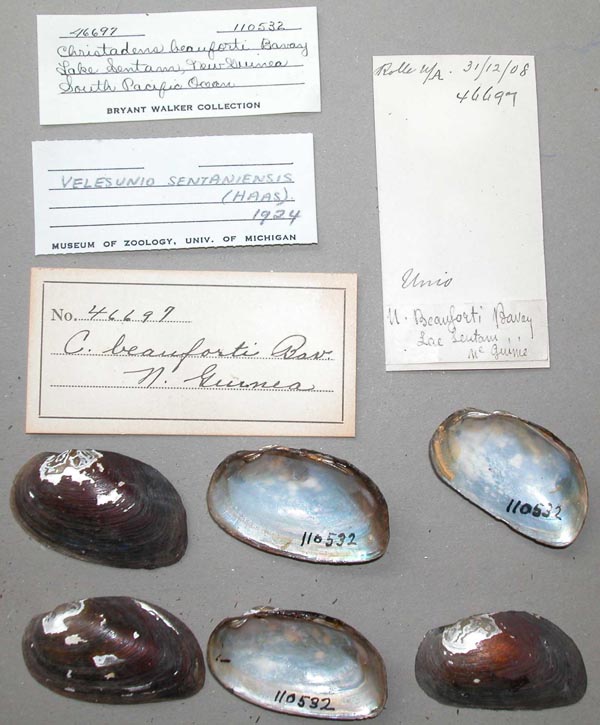 46697 110532
Christadens beauforti Bavay
Lake Sentani, New Guinea
South Pacific Ocean
BRYANT WALKER COLLECTION
VELESUNIO SENTANIENSIS
(HAAS)
1924
MUSEUM OF ZOOLOGY, UNIV. OF MICHIGAN
No. 46697
C. beauforti Bav.
N. Guinea
Rolle 31/12/08
46697
Unio
U. Beauforti Bavay
Lac Sentani
Ne Guinée
110532
110532
110532